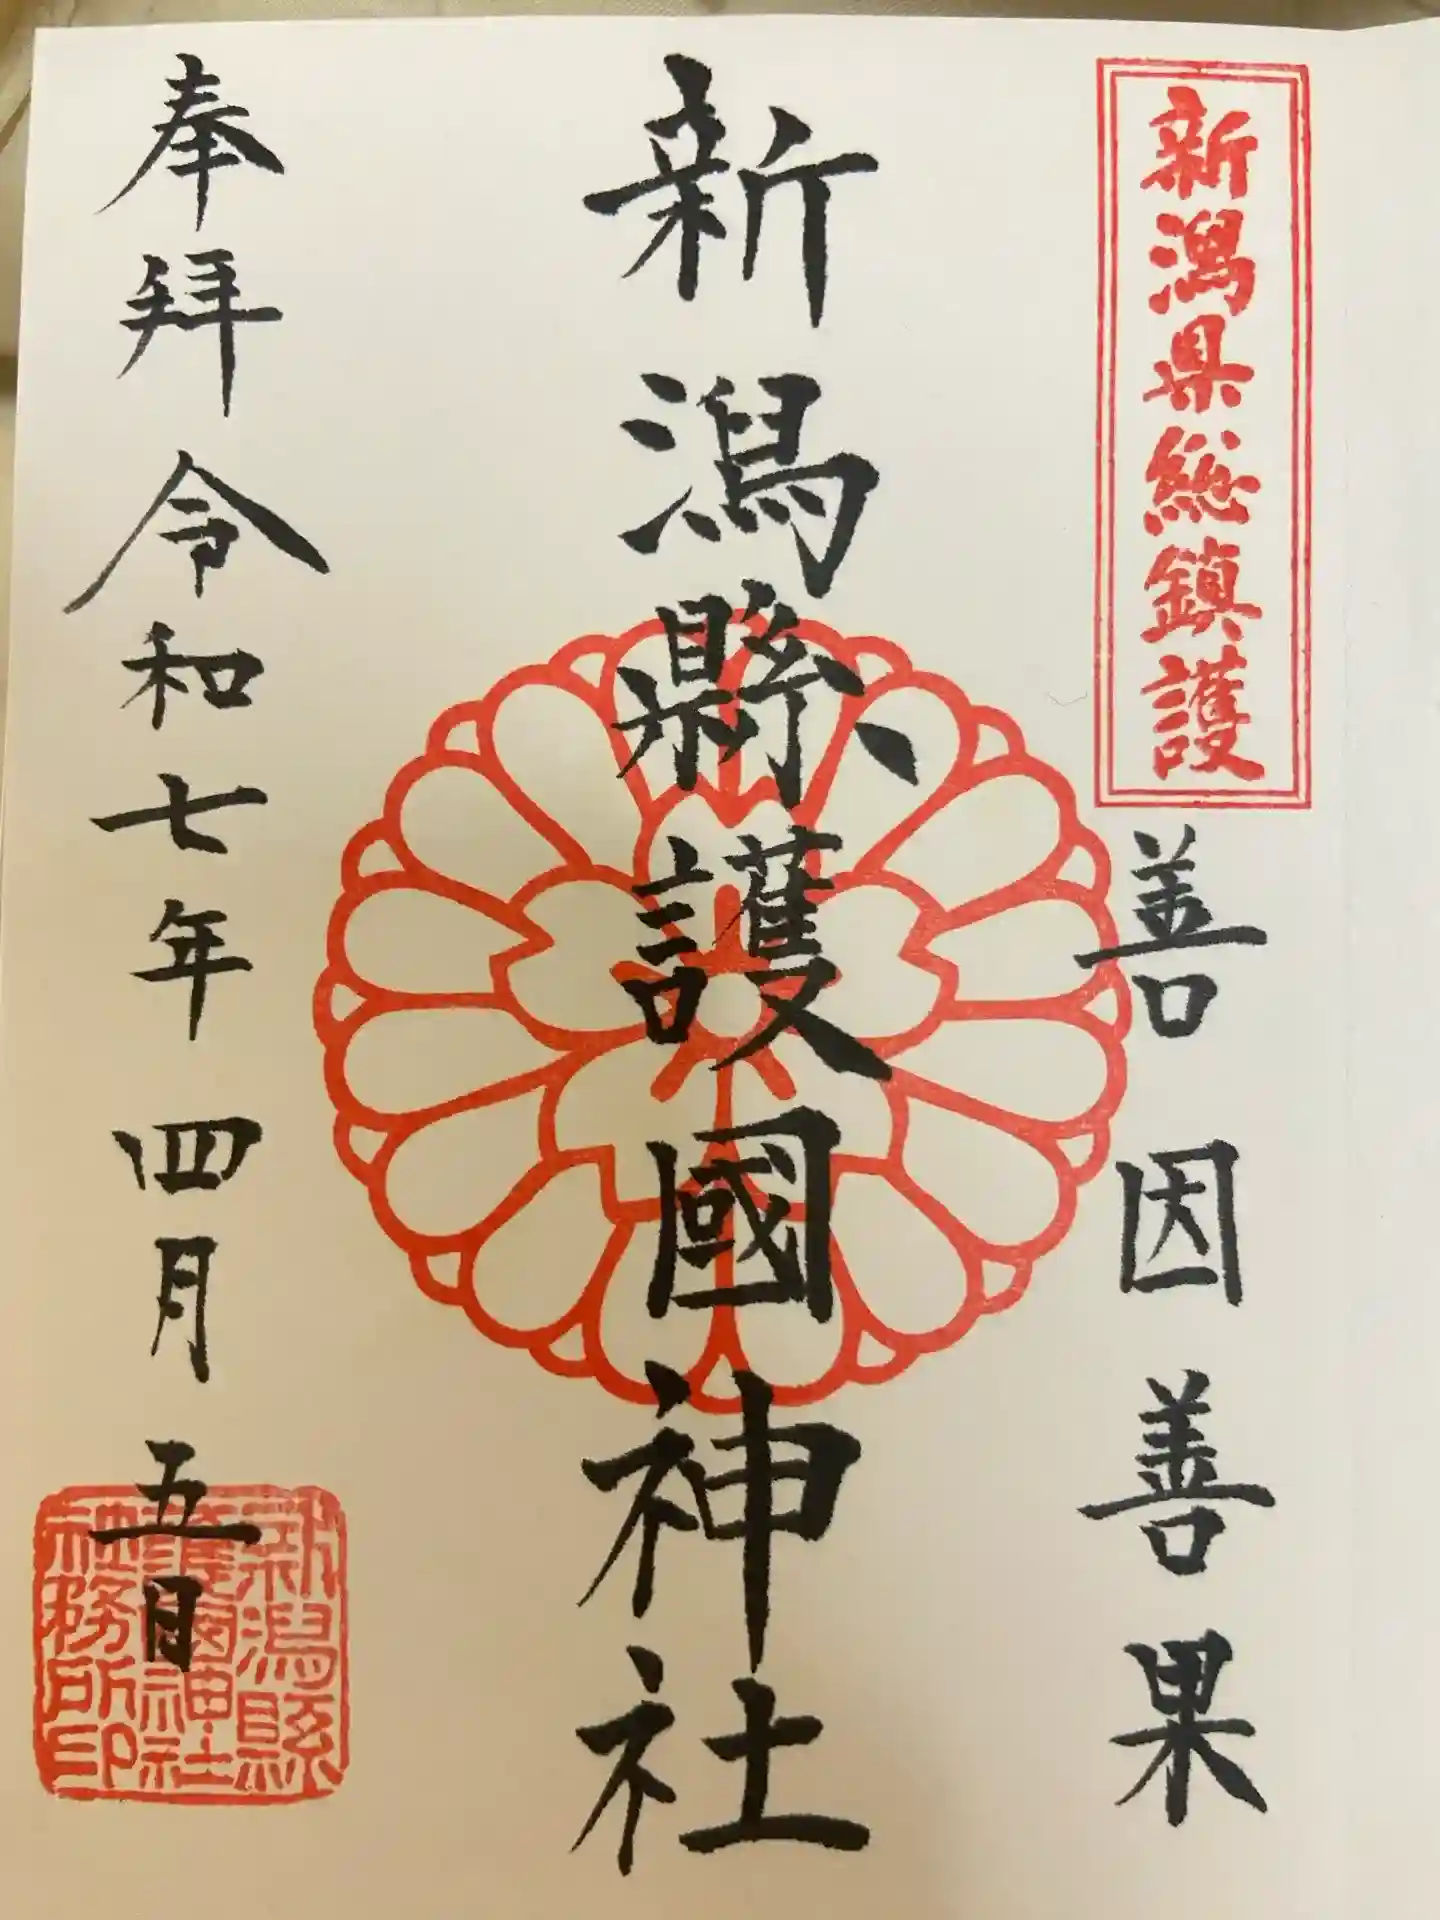 新潟県総鎮護
善因善果
新潟縣護國神社
奉拝 令和七年 四月 五日
新潟縣
護國神社
社務所印